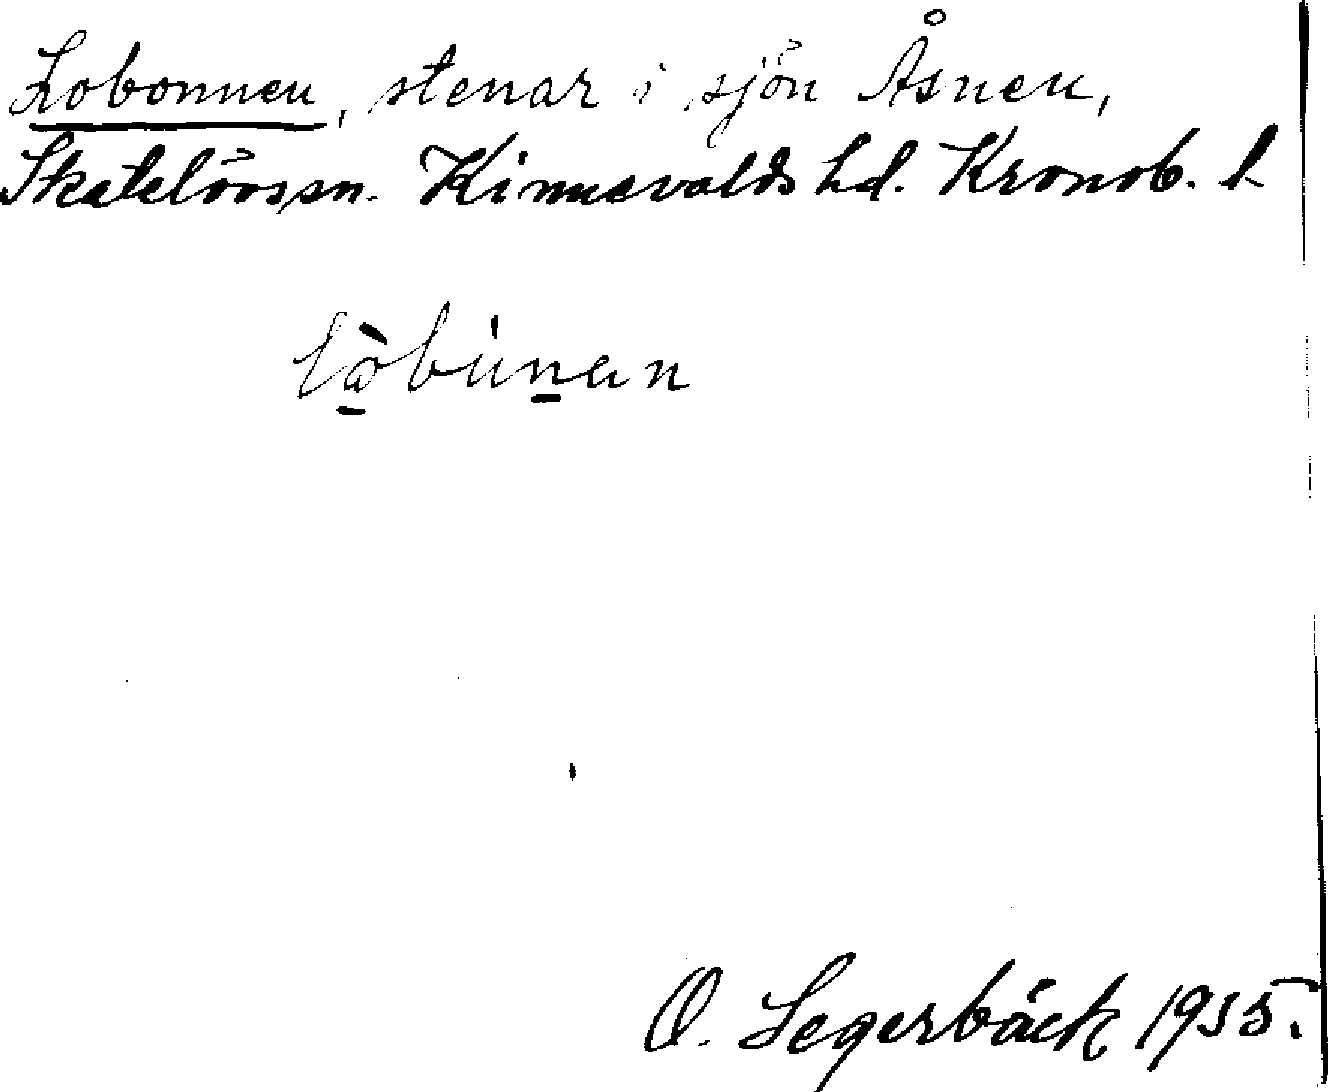 Lobonnen, stenar i sjön Åsnen,
Skatelövs sn. Kinnevalds hd. Kronob. l
O. Segerbäck 1935.